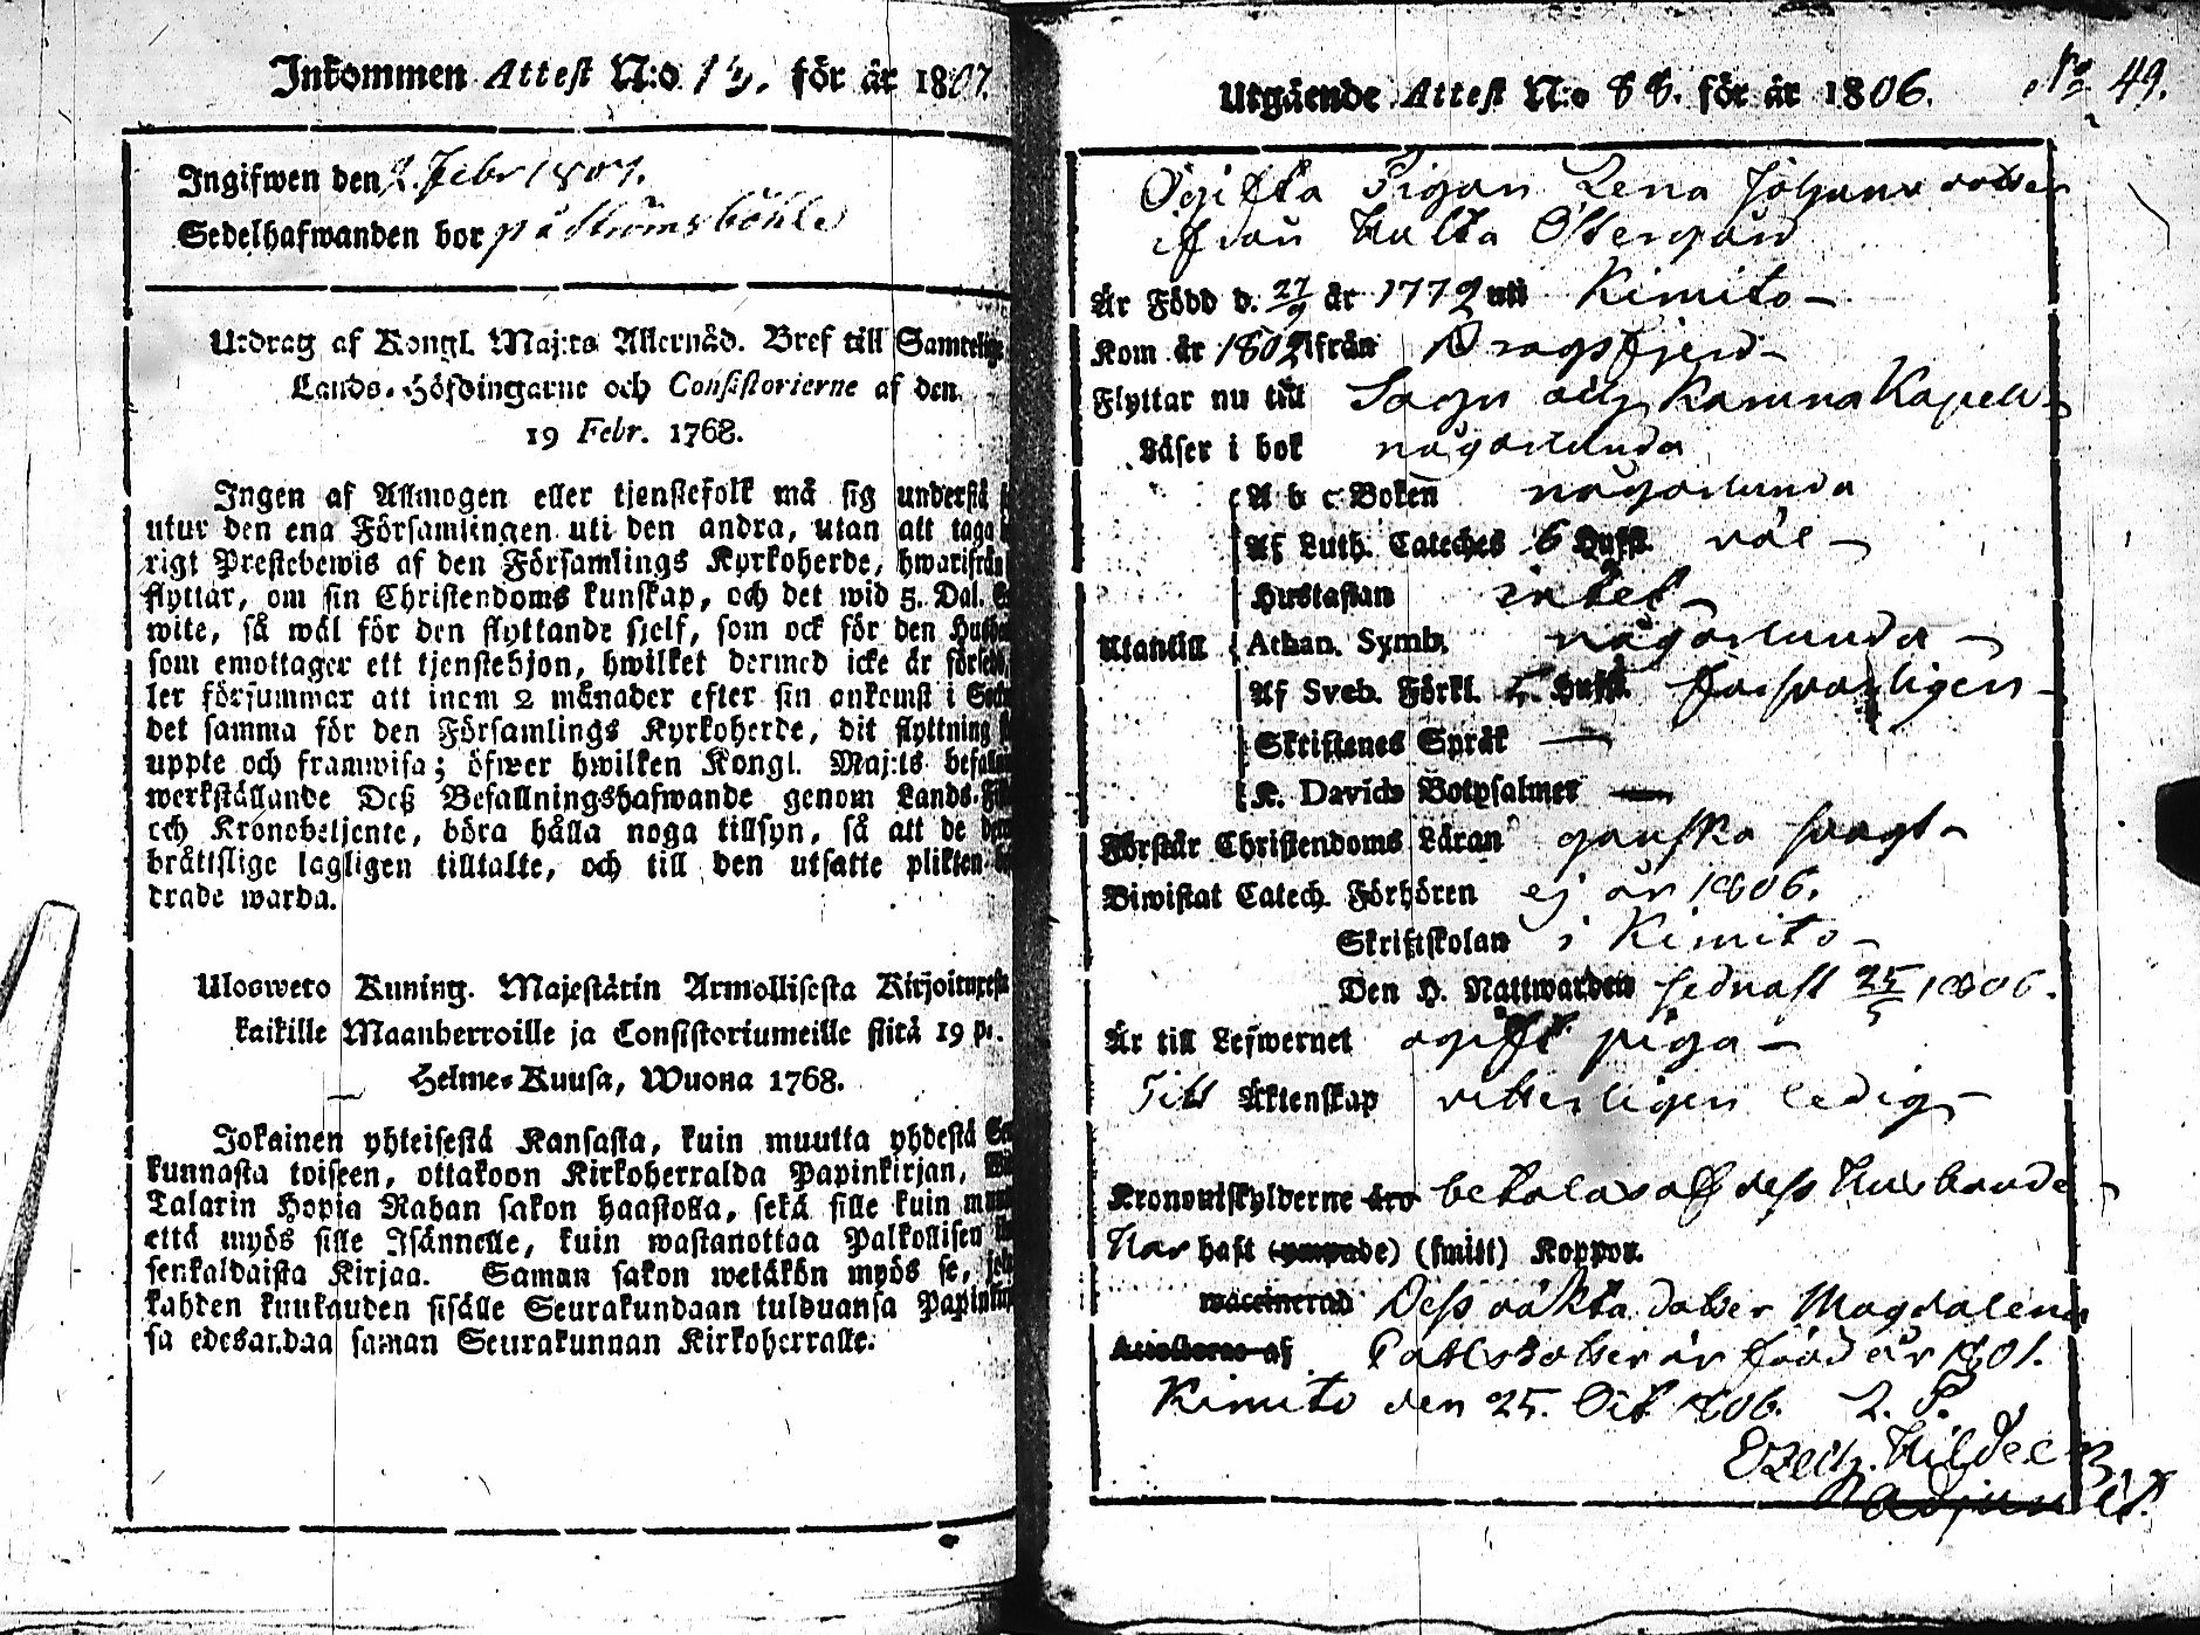 Inkommen Attest N:o 13. för år 1807.
Ingifwen den 2. Febr 1807.
Sedelhafwanden bor på Strömsböhle
Utdrag af Kongl. Maj:ts Allernåd. Bref till Samtelige
Lands-Höfdingarne och Consistorierne af den
19 Febr. 1768.
Ingen af Allmogen eller tjenstefolk må sig understå
utur den ena Församlingen uti den andra, utan att taga
rigt Prestebewis af den Församlings Kyrkoherde, hwarifrån
flyttar, om sin Christendoms kunskap, och det wid 5. Dal.
wite, så wäl för den flyttande sjelf, som ock för den
som emottager ett tjenstehjon, hwilket dermed icke är försedt,
ler försummar att inom 2 månader efter sin ankomst i
det samma för den Församlings Kyrkoherde, dit flyttning
uppte och framwisa; öfwer hwilken Kongl. Maj:ts
werkställande Deß Befallningshafwande genom Lands-
och Kronobetjente, böra hålla noga tillsyn, så att de
bråttslige lagligen tilltalte, och till den utsatte plikten
drade warda.
Ulosweto Kuning. Majestätin Armollisesta Kirjoituxesta
kaikille Maanherroille ja Consistoriumeille siitä 19 p:
Helme-Kuusa, Wuona 1768.
Jokainen yhteisestä Kansasta, kuin muutta yhdestä
kunnasta toiseen, ottakoon Kirkoherralda Papinkirjan,
Talarin Hopia Rahan sakon haastolla, sekä sille kuin
että myös sille Isännelle, kuin wastanottaa Palkollisen
senkaldaista Kirjaa. Saman sakon wetäkön myös se,
kahden kuukauden sisälle Seurakundaan tulduansa
sa edesandaa saman Seurakunnan Kirkoherralle.
Utgående Attest N:o 88. för år 1806. No 49.
Ogifta Pigan Lena Johans dotter
ifrån Hulta Östergård
Är Född d. 27/9 år 1772 uti Kimito
Kom år 1802 ifrån Dragsfjerd
Flyttar nu till Sagu och Karuna Kapell
Läser i bok någorlunda
A b c Boken någorlunda
Af Luth. Cateches 6 Hufst. väl
Hustaflan intet
Utantill Athan. Symb. någorlunda
Af Sveb. Förkl. 5. Hufst. försvarligen
Skriftenes Språk —
K. Davids Botpsalmer —
Förstår Christendoms Läran ganska svagt
Biwistat Catech. Förhören ej år 1806.
Skriftskolan i Kimito
Den H. Nattwarden sednast 25/5 1806.
Är till Lefwernet ogift piga
Till Äktenskap vitterligen ledig
Kronoutskylderne äro betalas af dess Husbonde
Har haft (ympade) (smitt) Koppor.
waccinerad Dess oäkta dotter Magdalena
Attesteras af Carlsdotter är född år 1801.
Kimito den 25. Oct 1806. L. P.